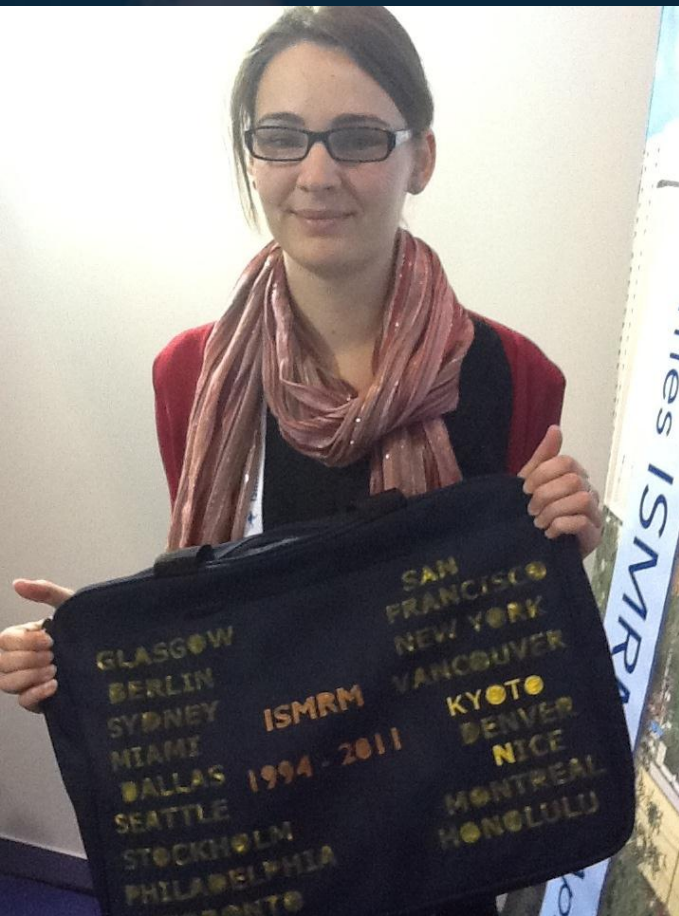 GLASGOW
BERLIN
SYDNEY
MIAMI
DALLAS
SEATTLE
STOCKHOLM
PHILADELPHIA
TORONTO
ISMRM
1994 - 2011
SAN
FRANCISCO
NEW YORK
VANCOUVER
KYOTO
DENVER
NICE
MONTREAL
HONOLULU
ISMRM